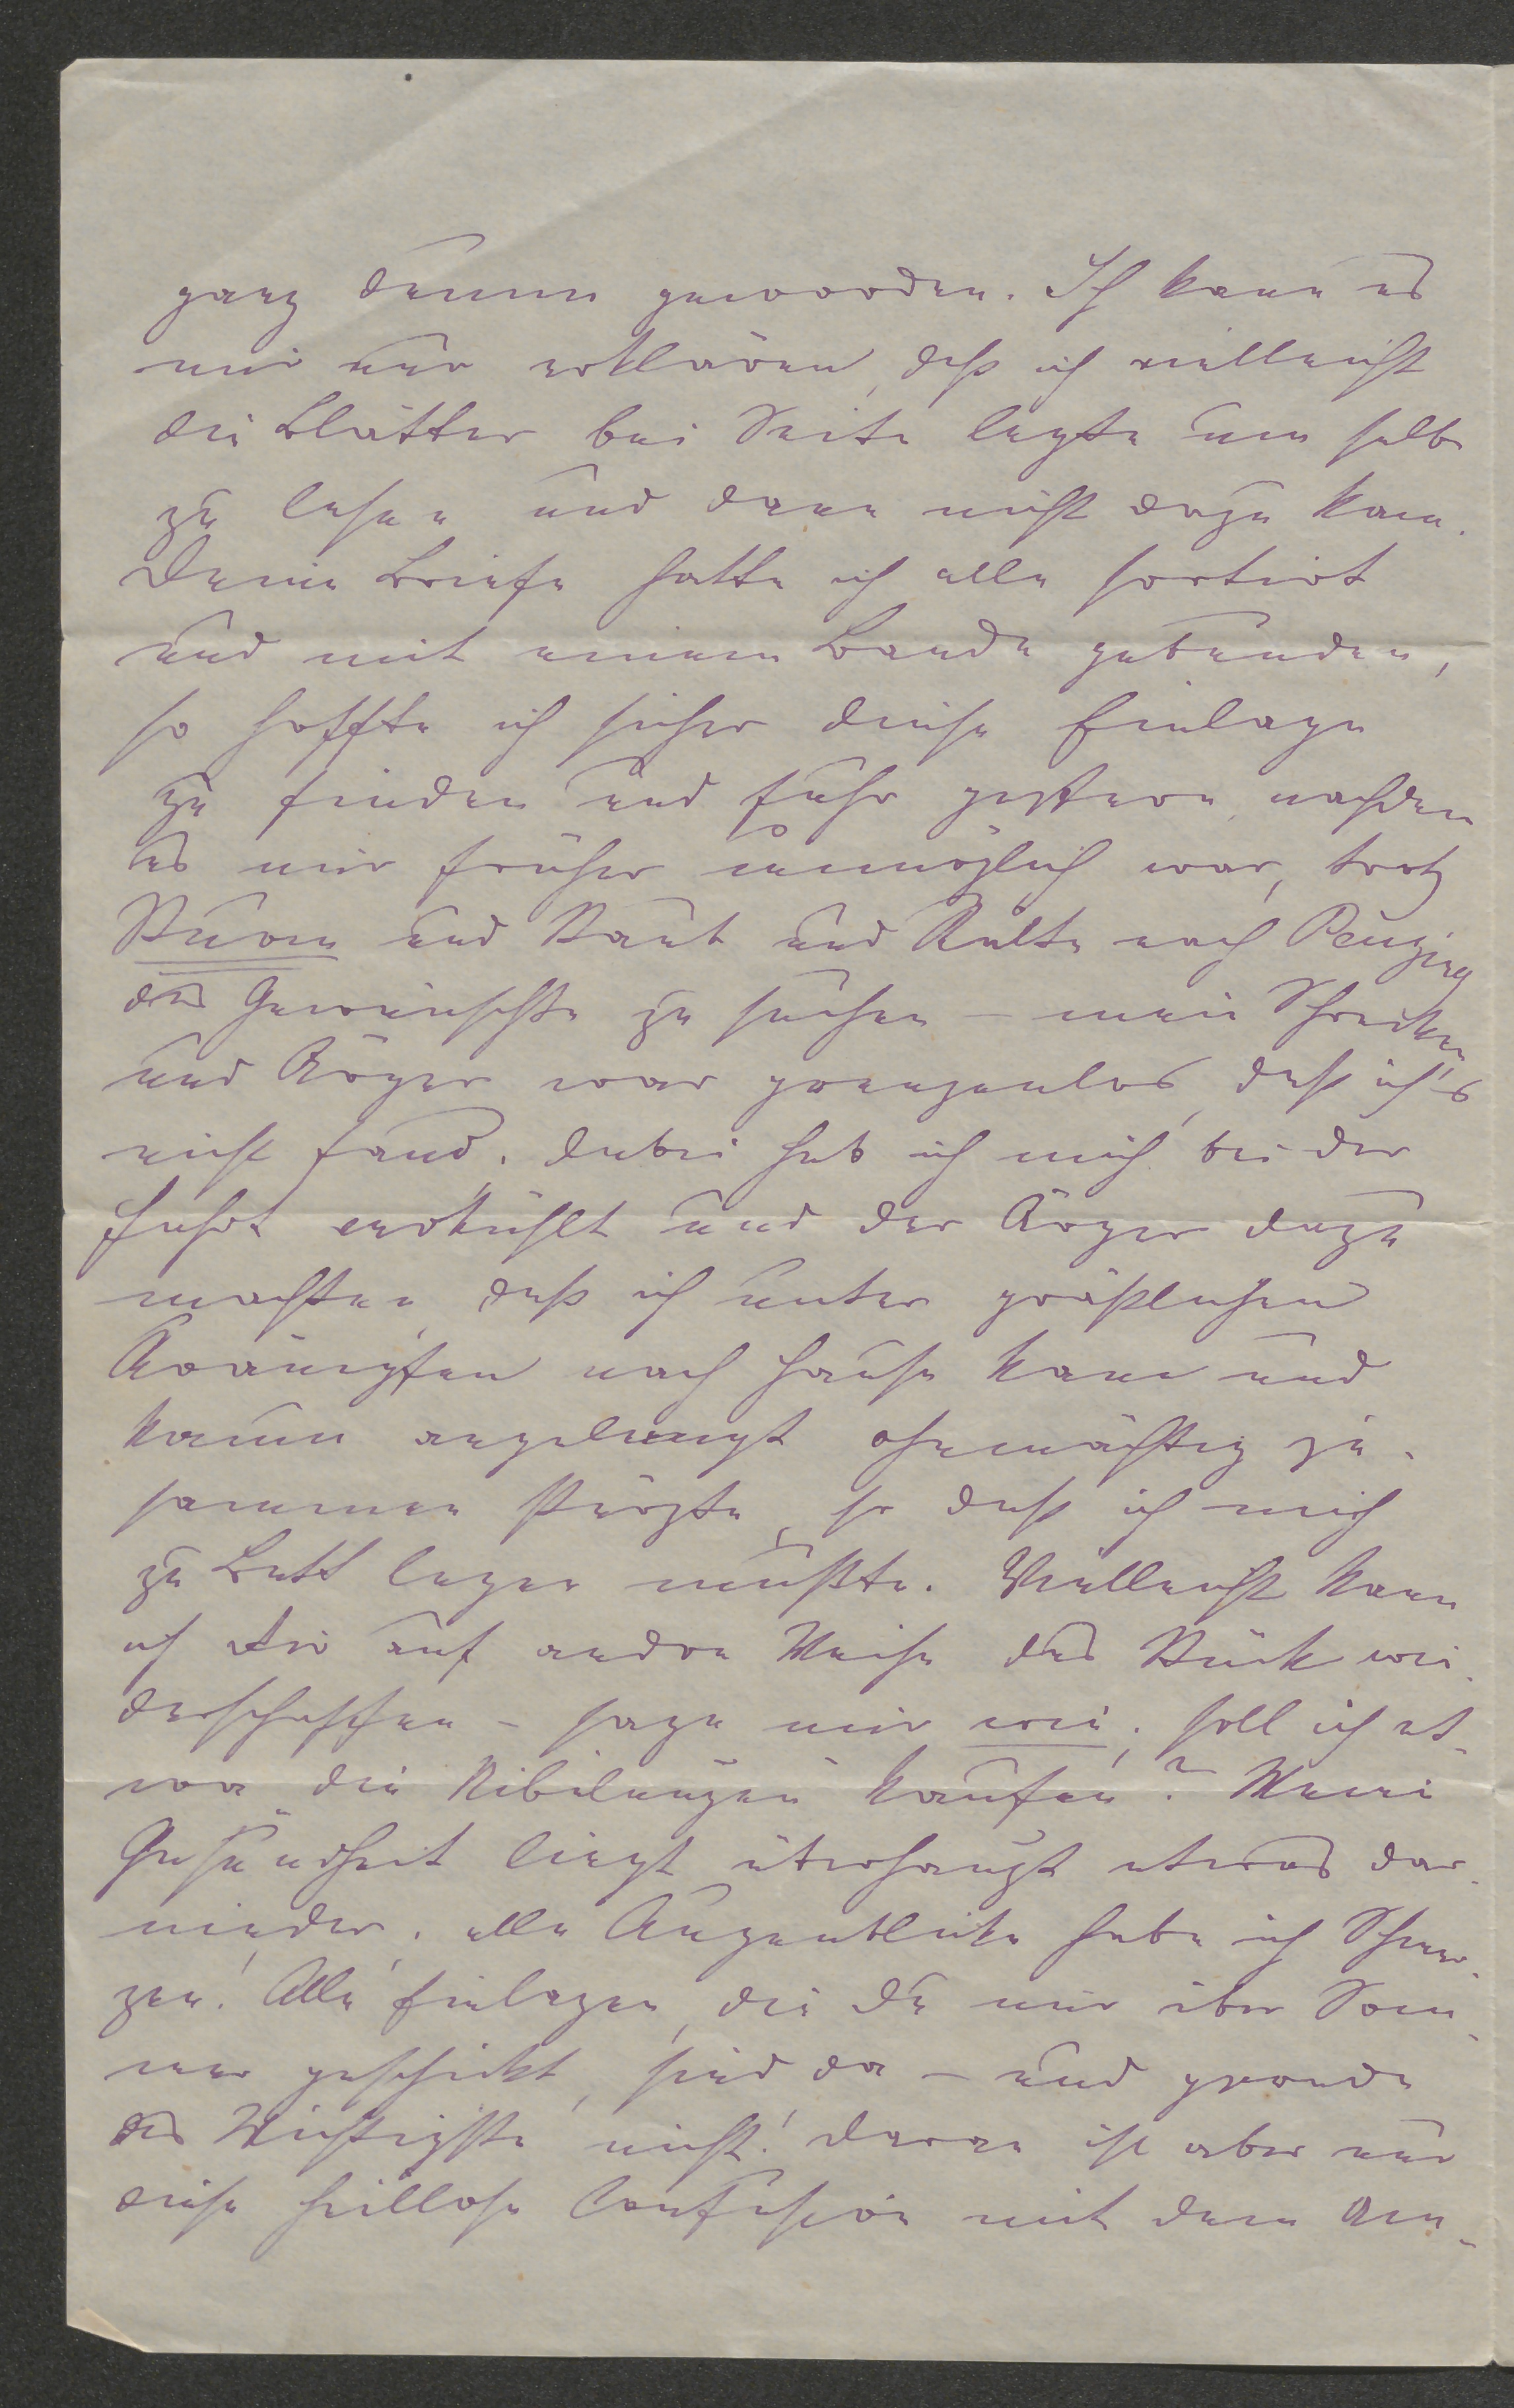 ganz dumm geworden. Ich kann es
mir nur erklären, daß ich vielleicht
die Blätter bei Seite legte um selbe
zu lesen und dann nicht dazu kam.
Deine Briefe hatte ich alle sortirt
und mit einem Bande gebunden,
so hoffte ich sicher diese Einlage
zu finden und fuhr gestern, nachdem
es mir früher unmöglich war, trotz
Sturm und Staub und Kälte nach Penzing
das Gewünschte zu suchen – mein Schrecken
und Ärger war grenzenlos, daß ich's
nicht fand. Dabei hab ich mich bei der
Fahrt erkühlt und der Ärger dazu
machten, daß ich unter gräßlichen
Krämpfen nach Hause kam und
kaum angelangt ohnmächtig zu-
sammen stürzte, so daß ich mich
zu Bett legen mußte. Vielleicht kann
ich Dir auf andre Weise das Stück wie-
derschaffen – sage mir wie; soll ich et-
wa die Nibelungen kaufen? Meine
Gesundheit liegt überhaupt etwas dar-
nieder, alle Augenblicke habe ich Schmer-
zen! Alle Einlagen, die Du mir über Som-
mer geschickt, sind da – und grade
das Wichtigste nicht! Daran ist aber nur
diese heillose Confusion mit dem Um-